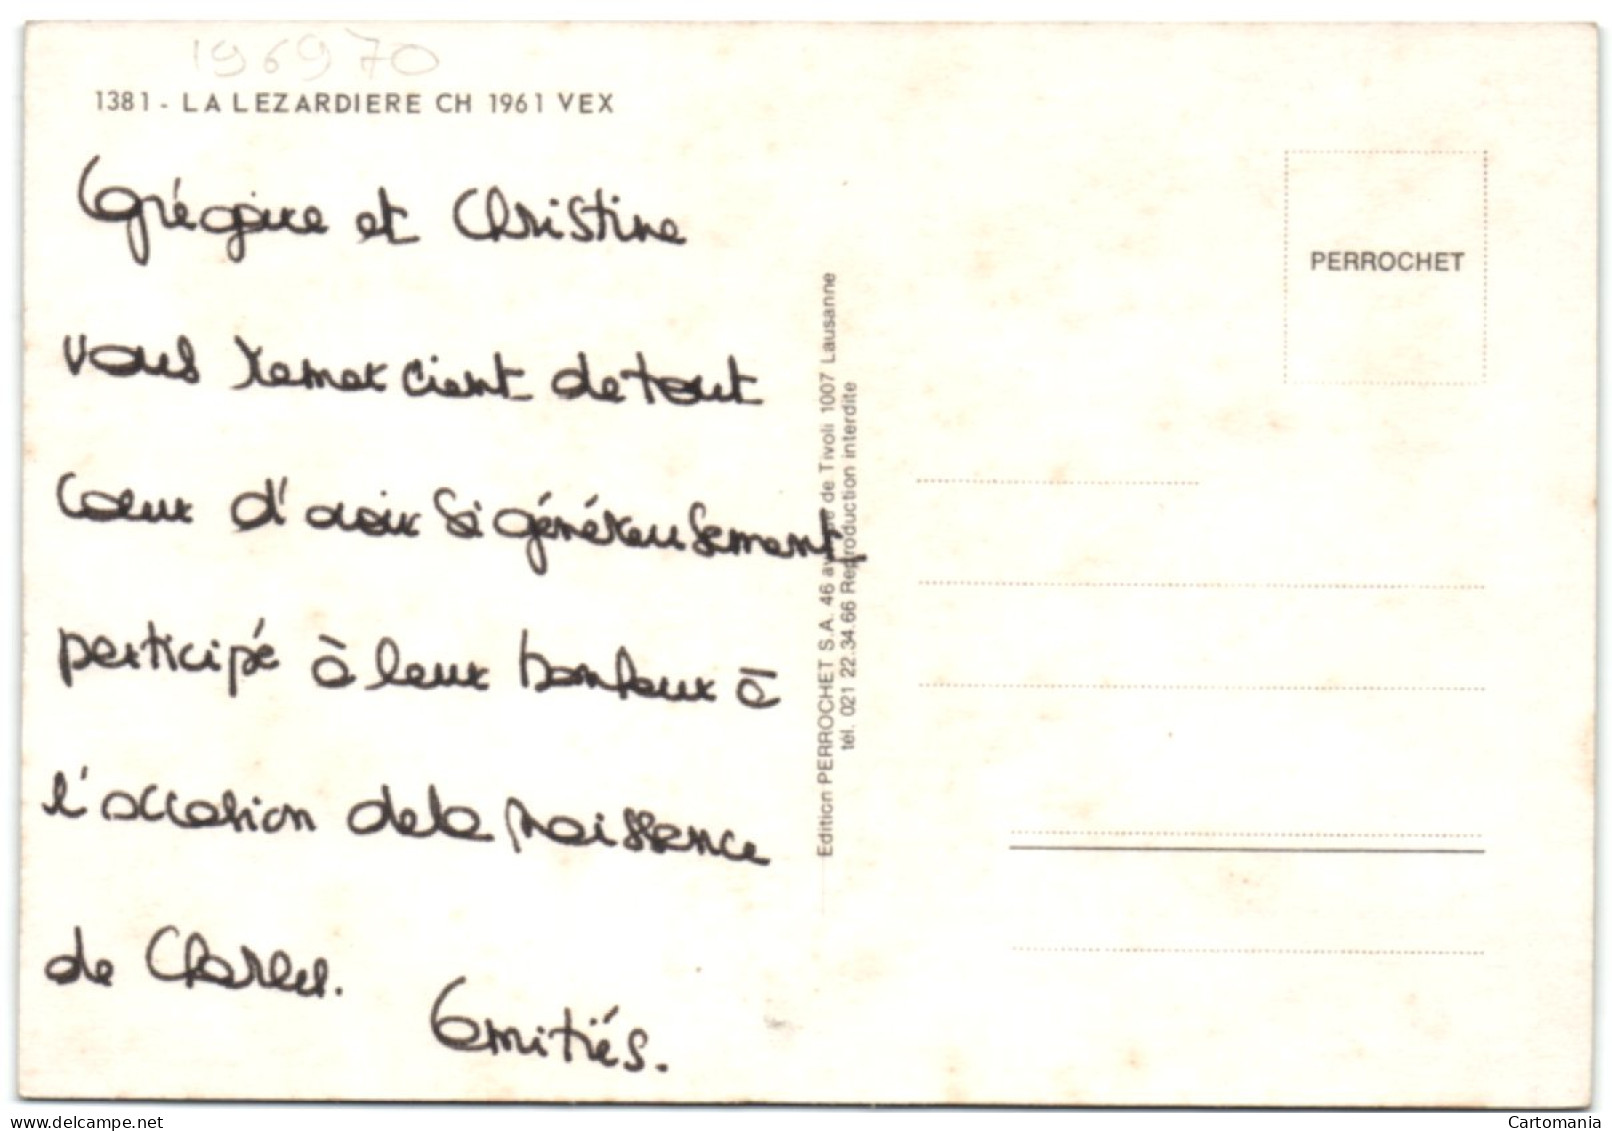 196970
1381 - LA LEZARDIERE CH 1961 VEX
Grégoire et Christine
vous remercient de tout
cœur d'avoir si généreusement
participé à leur bonheur à
l'occasion de la naissance
de Charles.
Amitiés.
Edition PERROCHET S.A. 46 avenue de Tivoli 1007 Lausanne
tél. 021 22.34.66 Reproduction interdite
PERROCHET
Cartomania